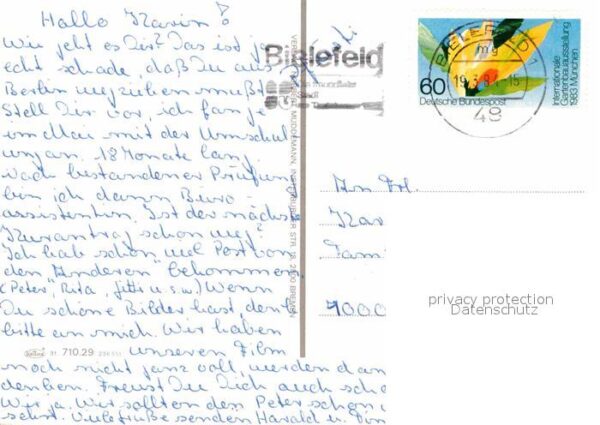 Hallo Karin!
Wie geht es Dir? Das ist ja
echt schade daß Du aus
Berlin wegziehen mußt
Stell Dir vor, ich fange
im Mai mit der Umschul
ung an. 18 Monate lang
nach bestandener Prüfung
bin ich dann Büro-
assistentin. Ist der nächste
Kurantrag schon weg?
Ich hab schon viel Post von
den "Anderen" bekommen.
(Peter, Rita, u s w) Wenn
Du schöne Bilder hast, denk
bitte an mich. Wir haben
unseren Film
noch nicht ganz voll, werden dan
denken. Freust Du Dich auch scho
Wir ja. Wir sollten den Peter schon
Viele Grüße senden Harald u.
Bielefeld
Stadt
BIELEFELD 1
mg
48
60
Deutsche Bundespost
Internationale
Gartenbauausstellung
1983 München
An Frl.
Kar
Fam
1000
privacy protection
Datenschutz
31. 710.29